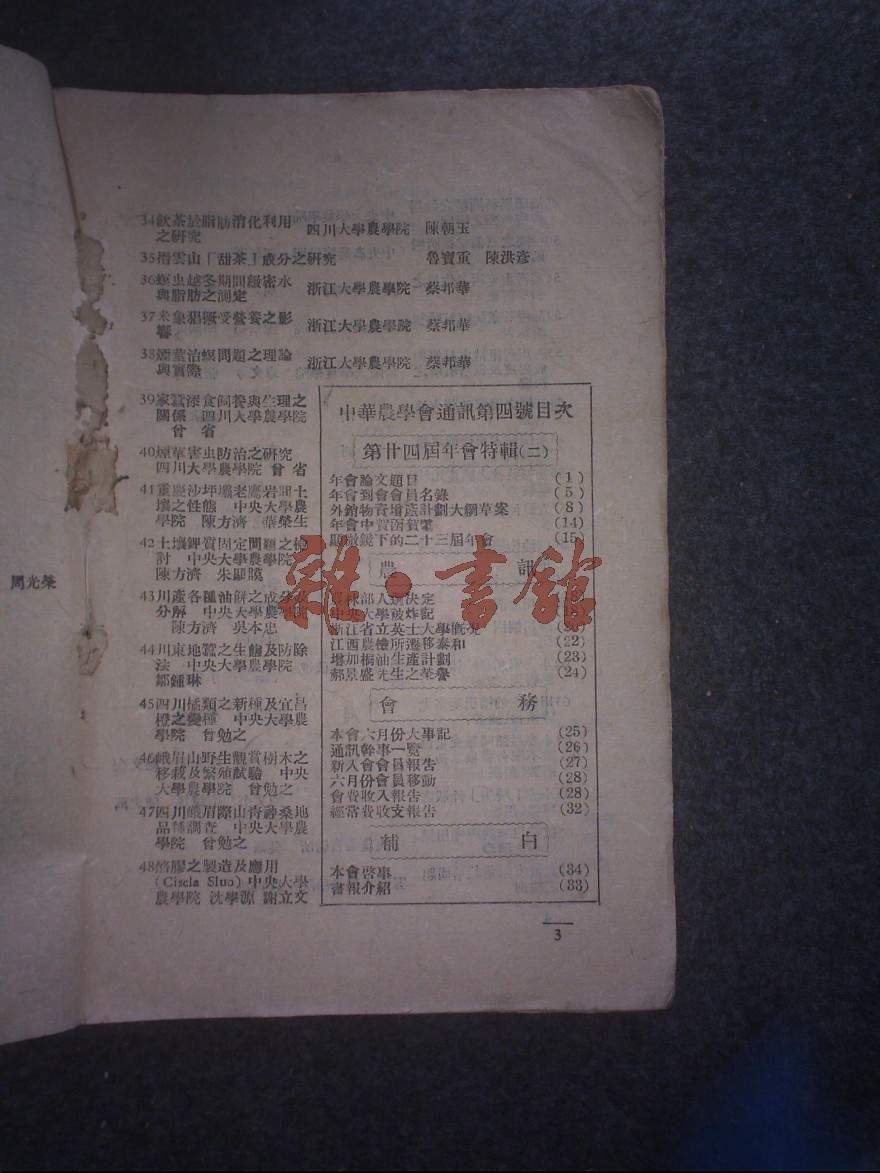 34飲茶於脂肪消化利用
之研究
四川大學農學院 陳朝玉
35搢雲山「甜茶」成分之研究 魯寶重 陳洪彥
36螟虫越冬期間組密水
與脂肪之測定
浙江大學農學院 蔡邦華
37米象猖厥受營養之影
響
浙江大學農學院 蔡邦華
38煙莖治螟問題之理論
與實際
浙江大學農學院 蔡邦華
39家蠶深食飼養與生理之
關係 四川大學農學院
曾 省
40煙草害虫防治之研究
四川大學農學院 曾 省
41重慶沙坪壩老鷹岩間土
壤之性態 中央大學農
學院 陳方濟 華榮生
42土壤鉀質固定問題之檢
討 中央大學農學院
陳方濟 朱顯謨
43川產各種油餅之成分及
分解 中央大學農學院
陳方濟 吳本忠
44川東地蠶之生態及防除
法 中央大學農學院
鄒鍾琳
45四川橘類之新種及宜昌
橙之變種 中央大學農
學院 曾勉之
46峨眉山野生觀賞樹木之
移栽及繁殖試驗 中央
大學農學院 曾勉之
47四川峨眉際山青神桑地
品種調查 中央大學農
學院 曾勉之
48酪膠之製造及應用
(Cisela Sluo)中央大學
農學院 沈學源 謝立文
中華農學會通訊第四號目次
第廿四屆年會特輯(二)
年會論文題目 (1)
年會到會會員名錄 (5)
外銷物資增產計劃大綱草案 (8)
年會中賀函賀電 (14)
顯微鏡下的二十三屆年會 (15)
農 訊
農林部人選決定
中央大學被炸記
浙江省立英士大學概況
江西農檢所遷移泰和 (22)
增加桐油生產計劃 (23)
郝景盛先生之榮譽 (24)
會 務
本會六月份大事記 (25)
通訊幹事一覽 (26)
新入會會員報告 (27)
六月份會員移動 (28)
會費收入報告 (28)
經常費收支報告 (32)
補 白
本會啓事 (34)
書報介紹 (33)
3
周光榮
雜·書館